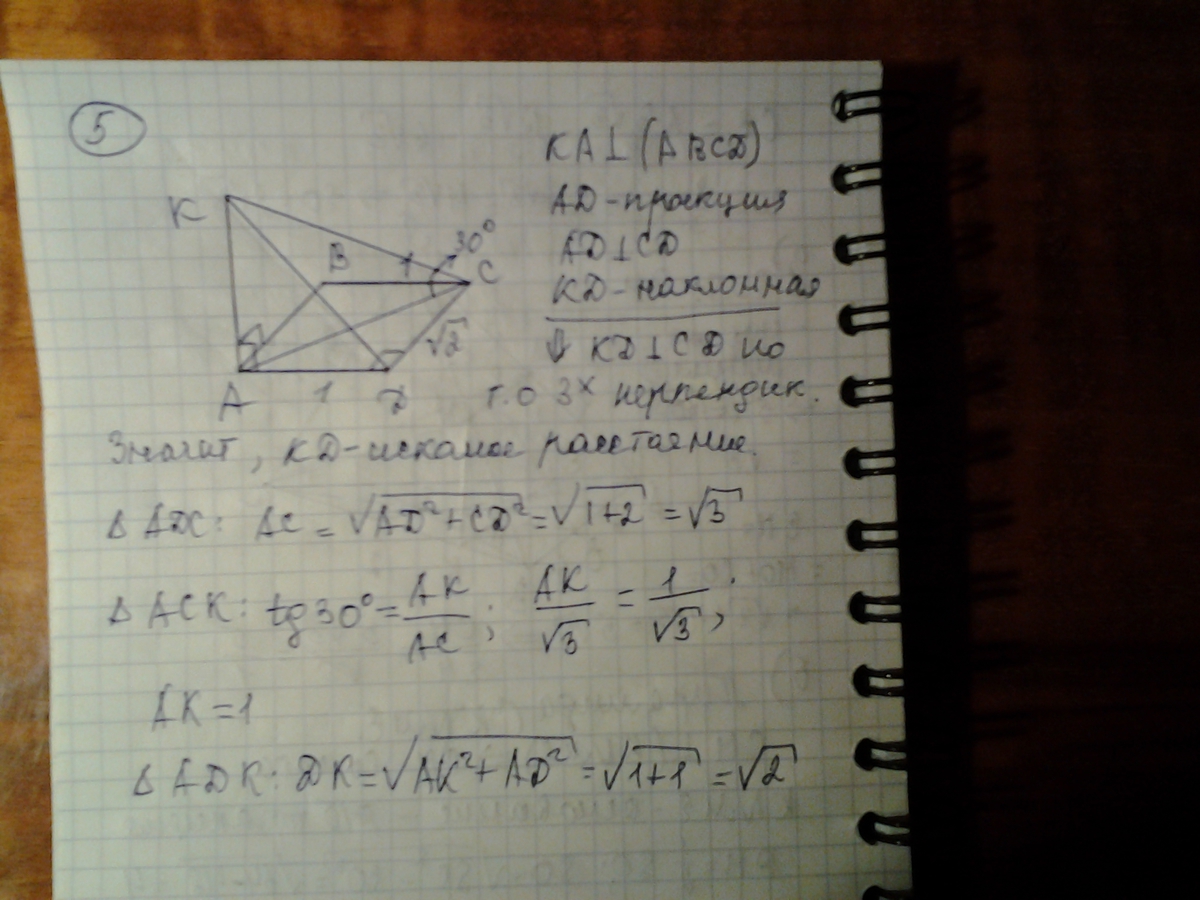 5
KA⊥(ABCD)
AD-проекция
AD⊥CD
KD-наклонная
⇓ KD⊥CD по
т.о 3х перпендик.
K
B
1
30°
C
√2
A
1
D
Значит, KD-искомое расстояние.
Δ ADC: AC = √AD²+CD² = √1+2 = √3
Δ ACK: tg30° = AK/AC ; AK/√3 = 1/√3 ;
AK = 1
Δ ADK: DK = √AK²+AD² = √1+1 = √2